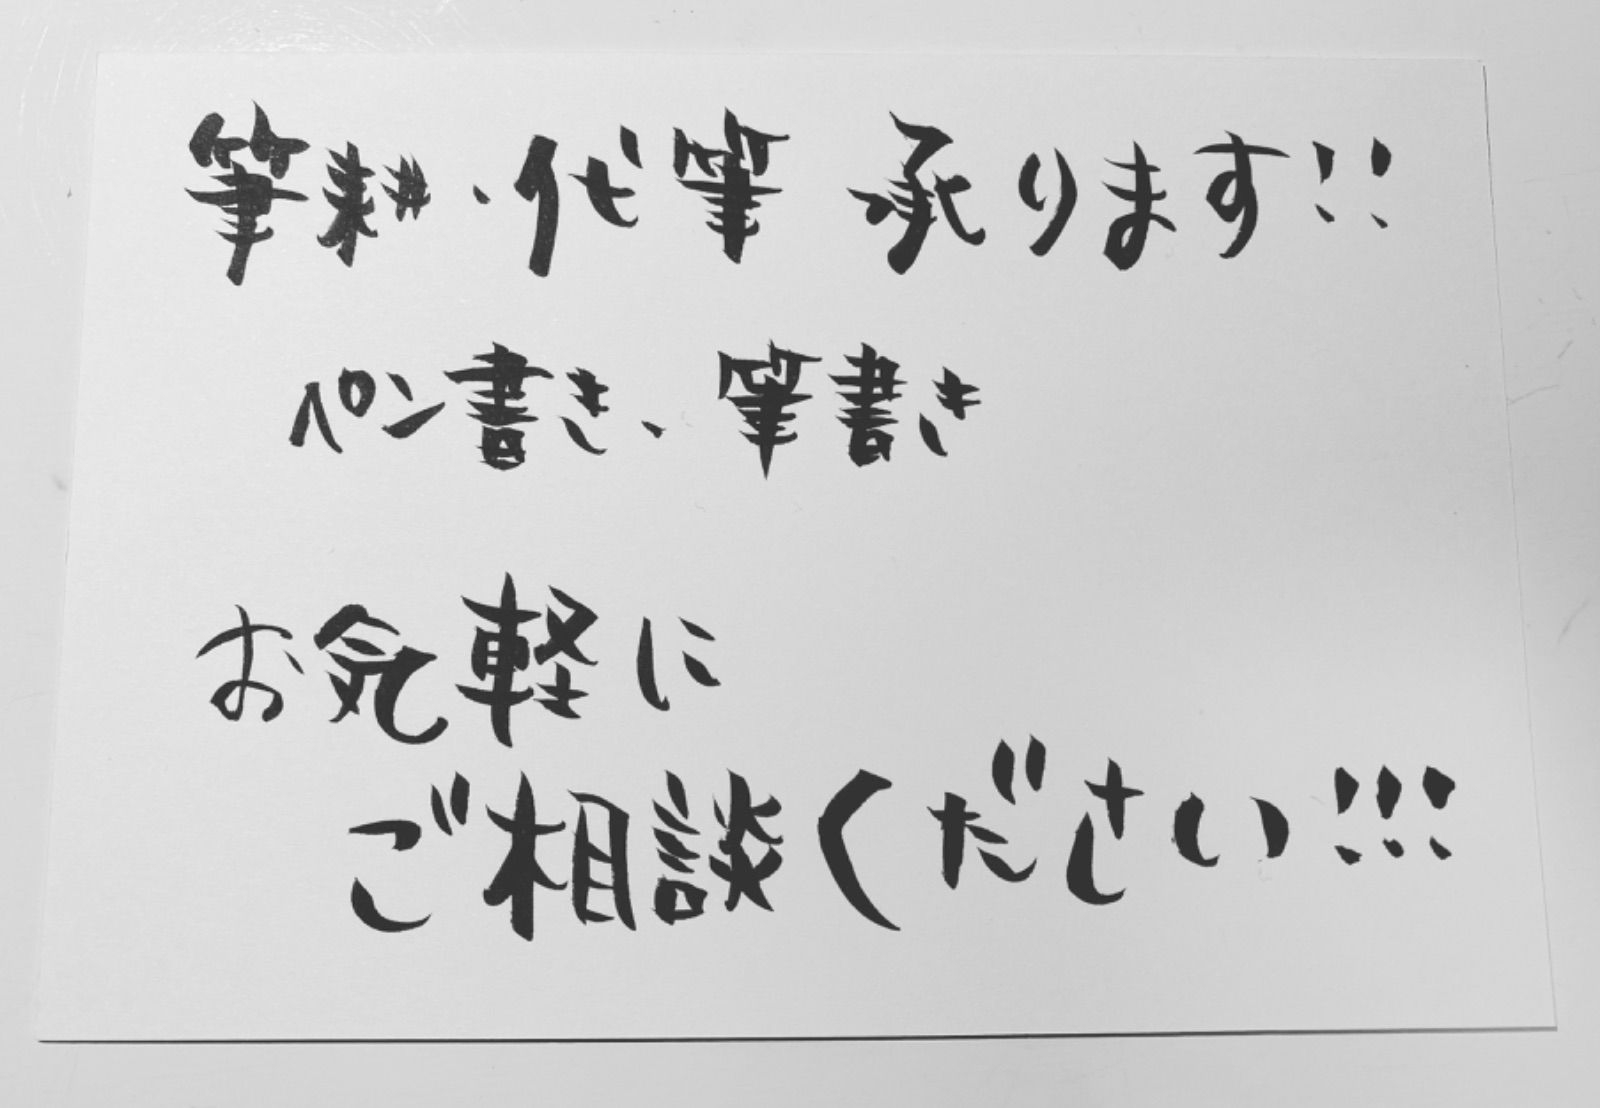 筆耕・代筆 承ります!!
ペン書き、筆書き
お気軽に
ご相談ください!!!